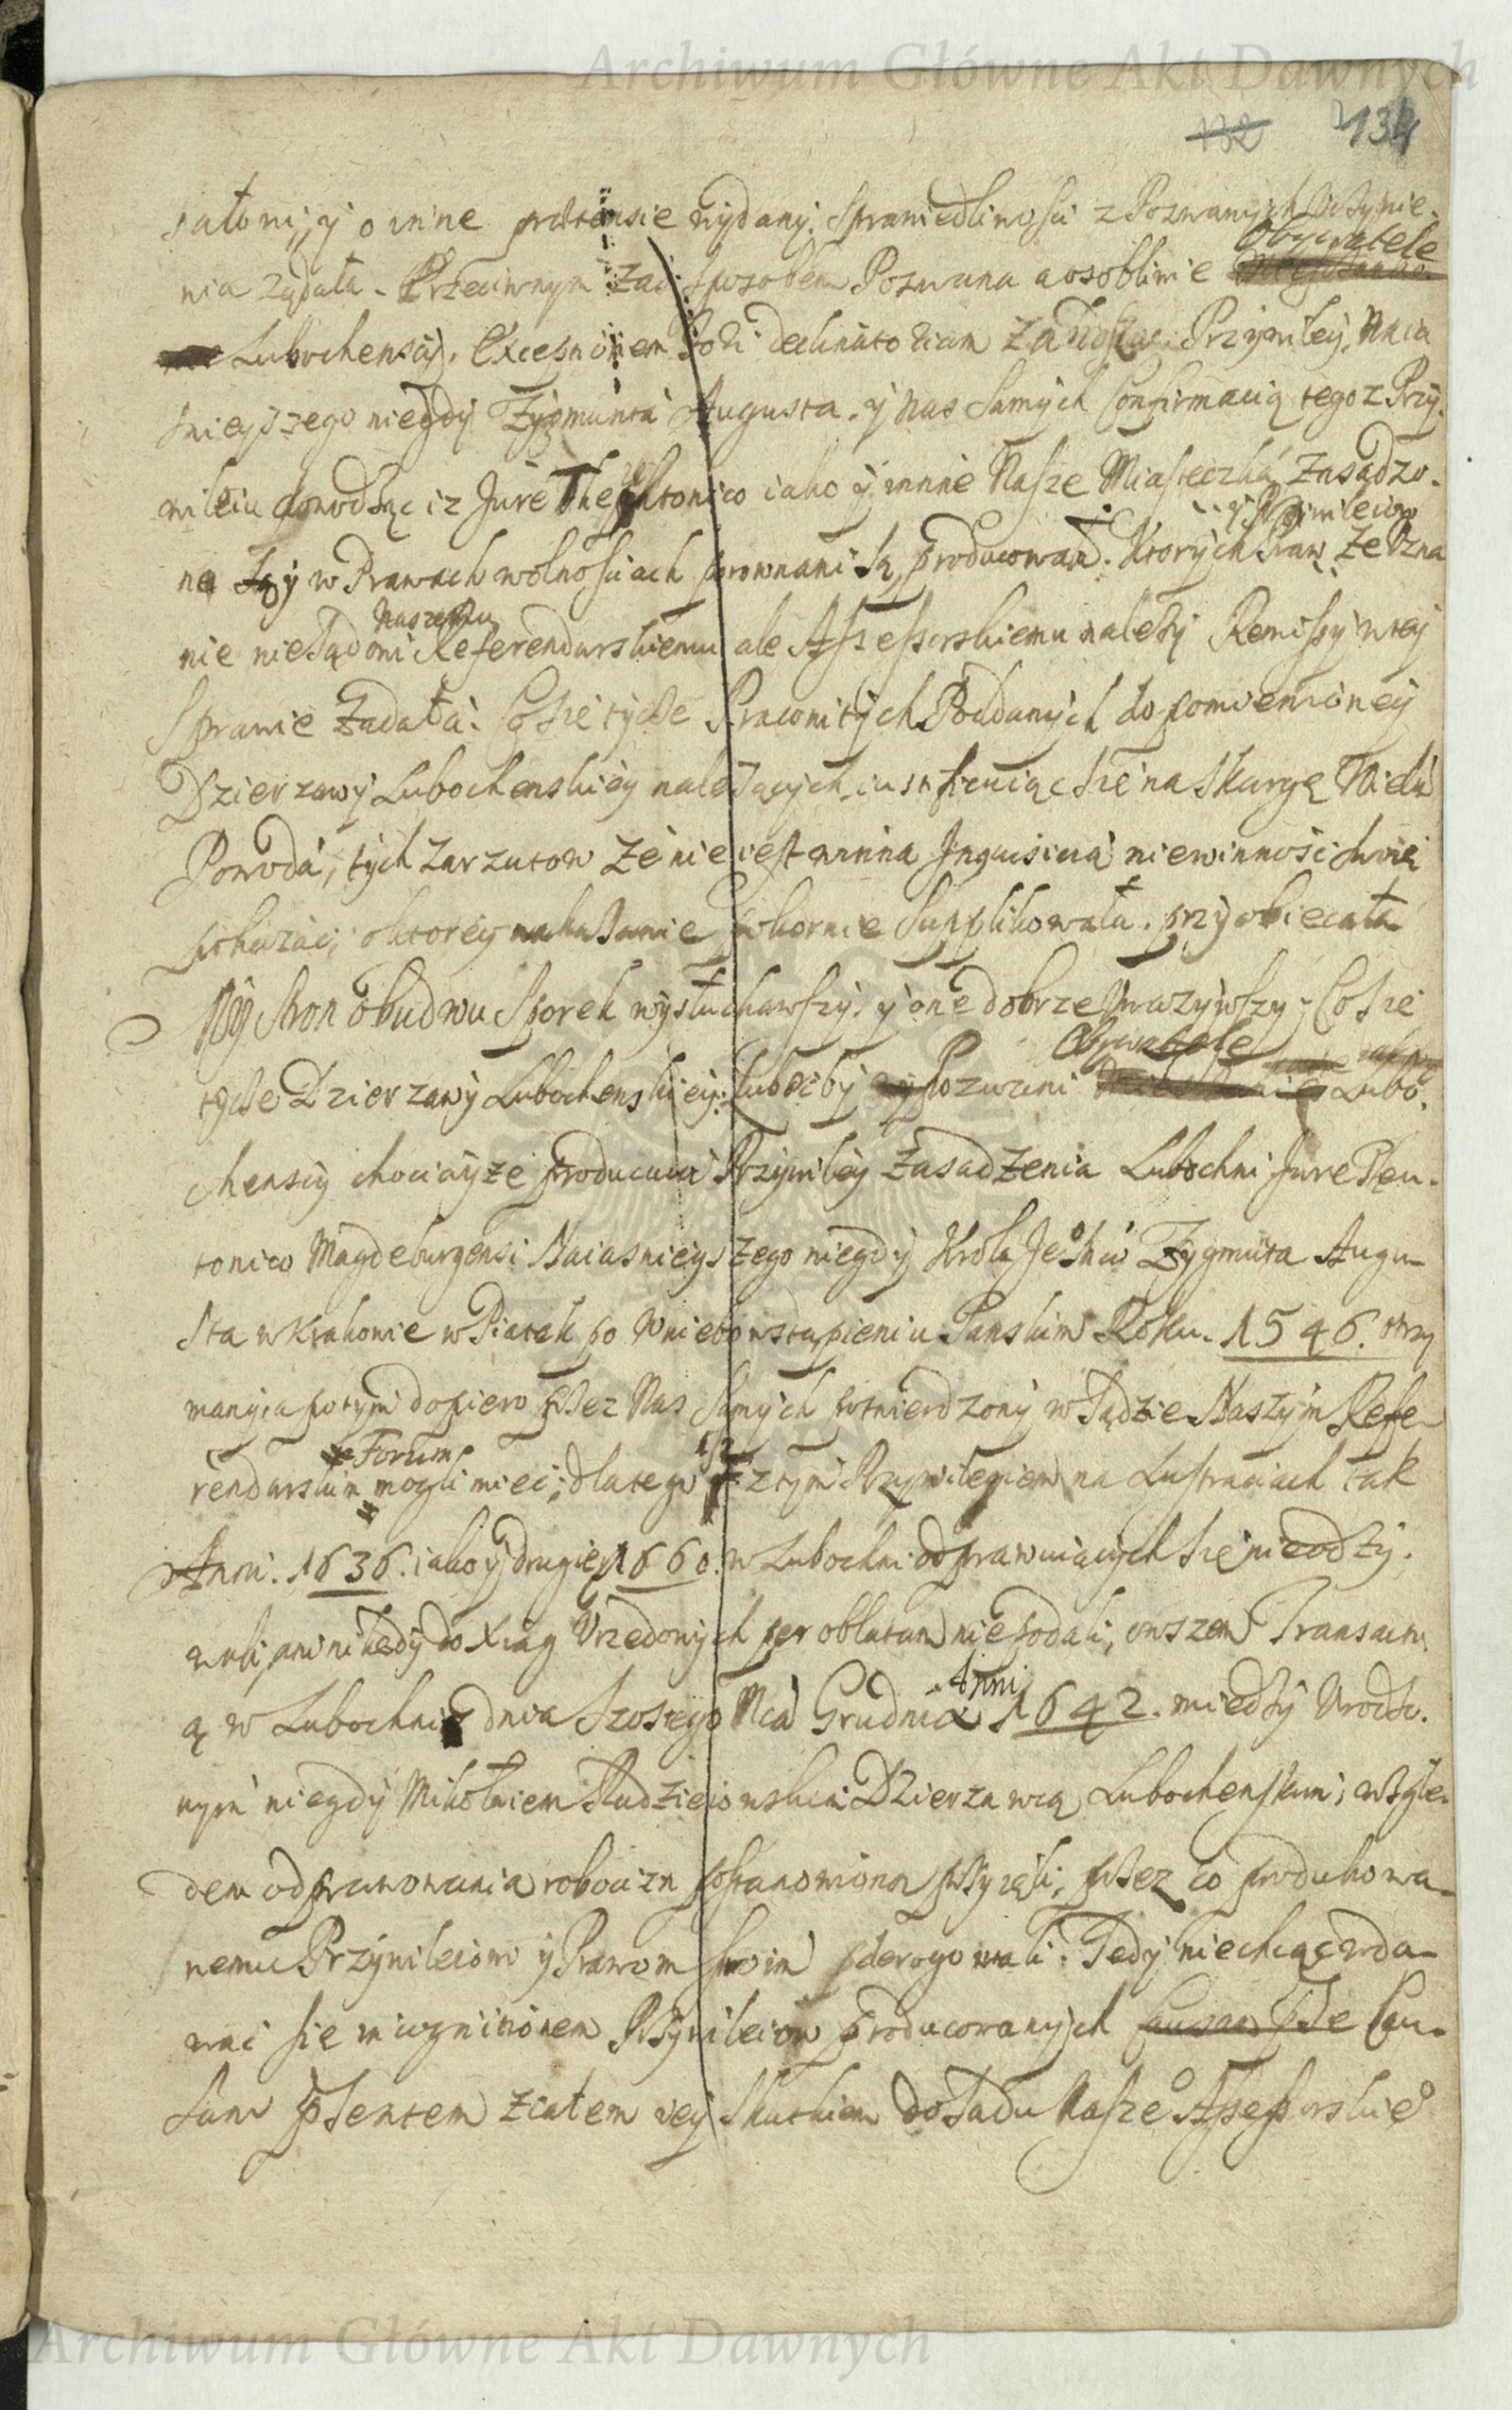 Archiwum Główne Akt Dawnych
132 134
y o inne pretensie wydany. Sprawiedliwości z Pozwanych Uczynie-
nia żądała. Przeciwnym zaś sposobem Pozwana a osobliwie Obywatele
Lubochenscy. Excepnionem Fori declinatoriam zanosząc Przywiley Naia
snieyszego niegdy Zygmunta Augusta. y Nas Samych Confirmacią tegoz Przy-
wileiu dowodząc iz Jure Theuhtonico iako y inne Nasze Miasteczka zasadzo-
na y w Prawach wolnosciach porownani są, producowała. Ktorych Praw y Przywileiow że Uzna
nie nie Sądowi Naszemu Referendarskiemu ale Assessorskiemu należy Remissy w tey
Sprawie żądała. Co się tycze Pracowitych Poddanych do pomienioney
Dzierzawy Lubochenskiey należących, iustificuiąc się na Skargę
Powoda, tych zarzutow że nie iest winna Inquisicią niewinności swoię
pokazać, o ktorey nakazanie pokornie supplikowała. przyobiecała
My Stron obudwu Sporek wysłuchawszy, y one dobrze Uwazywszy. Co się
tycze Dzierzawy Lubochenskiey. Luboćby Pozwani Obywatele Lubo-
chenscy chociayże producuią Przywiley zasadzenia Lubochni Jure Teu-
tonico Magdeburgensi Naiasnieyszego niegdy Krola Jeo Mci Zygmūta Augu-
sta w Krakowie w Piątek po Wniebowstąpieniu Panskim Roku. 1546. otrzy
many, a potym dopiero przez Nas Samych potwierdzony w Sądzie Naszym Refe-
rendarskim Forum mogli mieć; dlatego iż z tym Przywilegiem na Lustraciach tak
Anni. 1636. iako y drugiey 1660. w Lubochni odprawuiących się nieodzy-
wali, ani nikedy do Xiąg Urzędowych per oblatam nie podali, owszem Transacti
ą w Lubochni dnia Szostego Mca Grudnia Anni 1642. między Urodzo-
nym niegdy Mikołaiem Dzierzawcą Lubochenskim, wzglę-
dem odprawowania roboćizn postanowioną przyięli, przez co produkowa-
nemu Przywileiowi y Prawom swoim derogowali. Tedy niechcąc wda-
wać się w cognitionem Przywileiow producowanych Cau-
sam Psentem z całem iey Skutkiem do Sądu Naszeo Assessorskieo
Archiwum Główne Akt Dawnych